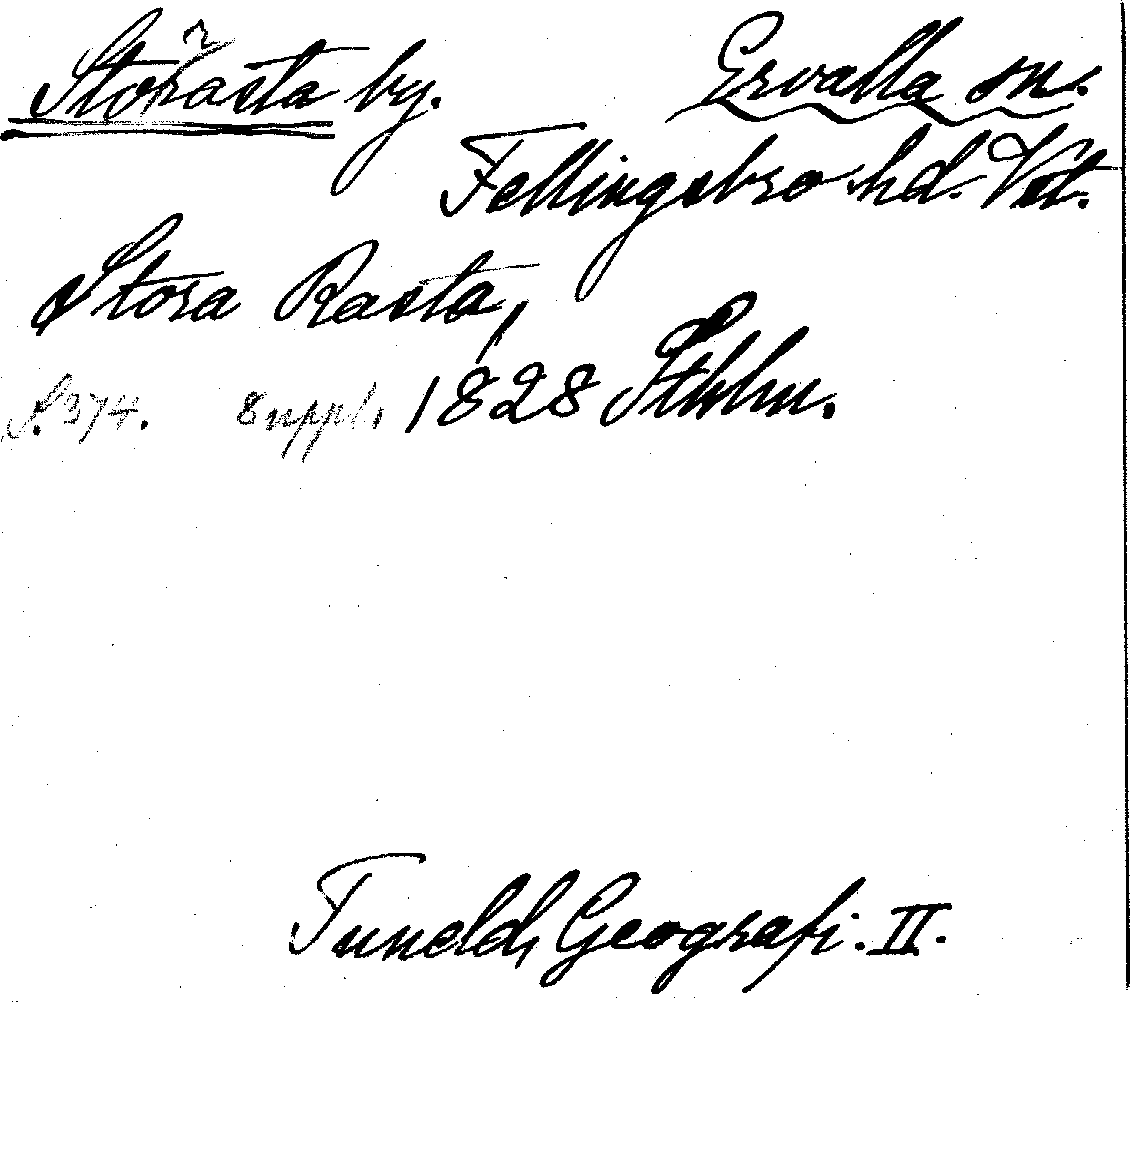 Storrasta by. Ervalla sn.
Fellingsbro hd. Vstl.
Stora Rasta,
S. 374. Suppl. 1828 Sthlm.
Tuneld, Geografi. II.